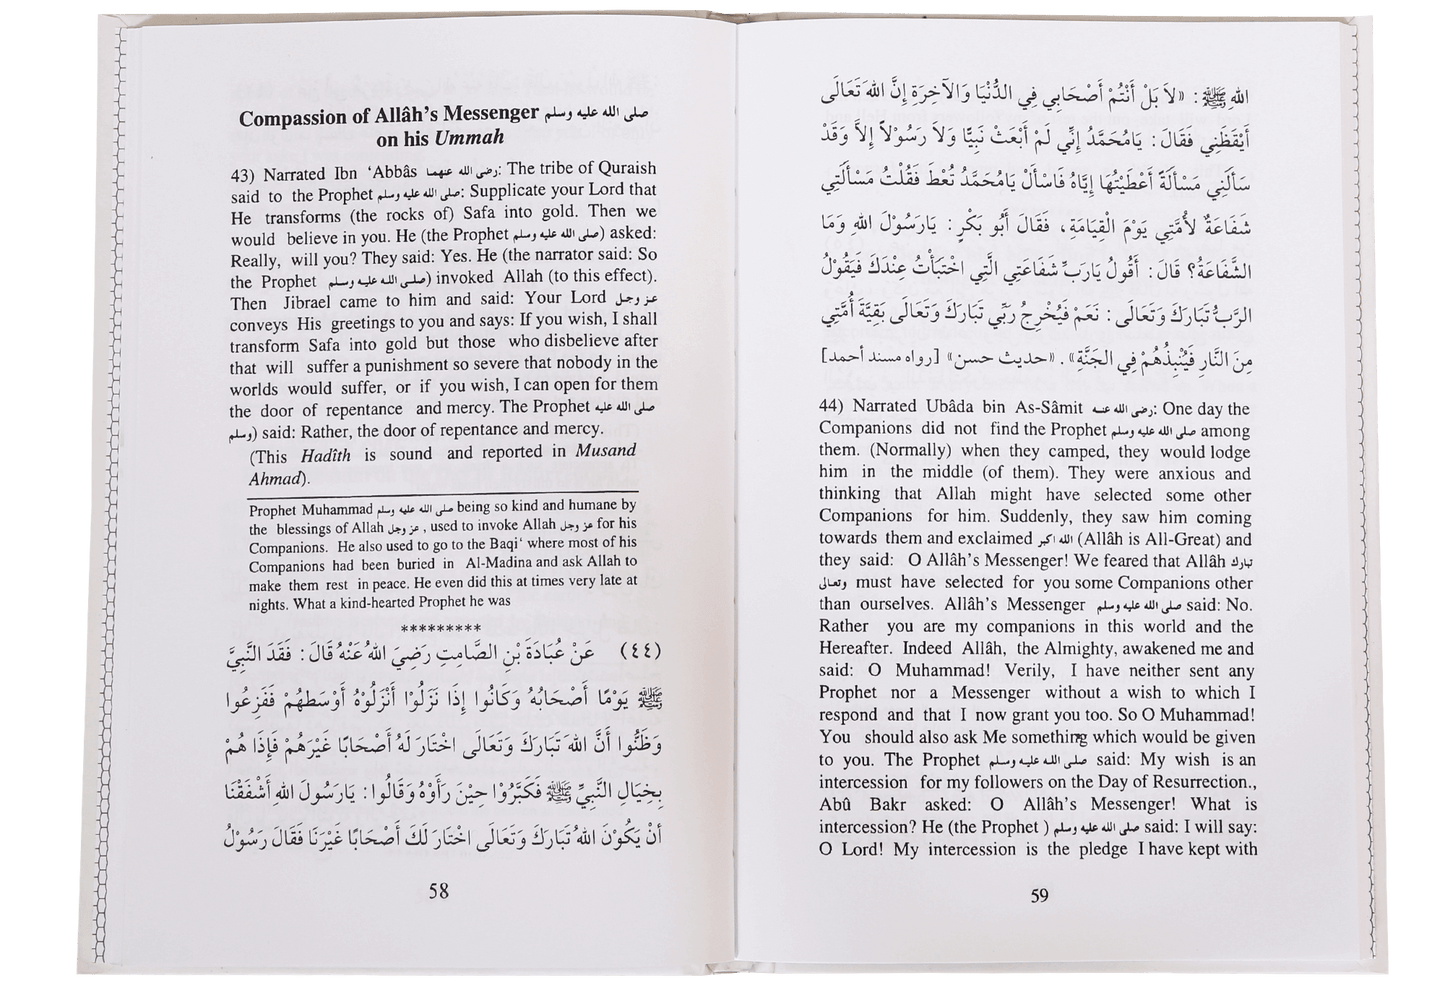 Compassion of Allâh's Messenger صلى الله عليه وسلم
on his Ummah
43) Narrated Ibn ‘Abbâs رضي الله عنهما: The tribe of Quraish
said to the Prophet صلى الله عليه وسلم: Supplicate your Lord that
He transforms (the rocks of) Safa into gold. Then we
would believe in you. He (the Prophet صلى الله عليه وسلم) asked:
Really, will you? They said: Yes. He (the narrator said: So
the Prophet صلى الله عليه وسلم) invoked Allah (to this effect).
Then Jibrael came to him and said: Your Lord عز وجل
conveys His greetings to you and says: If you wish, I shall
transform Safa into gold but those who disbelieve after
that will suffer a punishment so severe that nobody in the
worlds would suffer, or if you wish, I can open for them
the door of repentance and mercy. The Prophet صلى الله عليه
وسلم) said: Rather, the door of repentance and mercy.
(This Hadîth is sound and reported in Musand
Ahmad).
Prophet Muhammad صلى الله عليه وسلم being so kind and humane by
the blessings of Allah عز وجل , used to invoke Allah عز وجل for his
Companions. He also used to go to the Baqi‘ where most of his
Companions had been buried in Al-Madina and ask Allah to
make them rest in peace. He even did this at times very late at
nights. What a kind-hearted Prophet he was
*********
(٤٤) عَنْ عُبَادَةَ بْنِ الصَّامِتِ رَضِيَ اللهُ عَنْهُ قَالَ: فَقَدَ النَّبِيَّ
ﷺ يَوْمًا أَصْحَابُهُ وَكَانُوا إِذَا نَزَلُوْا أَنْزَلُوْهُ أَوْسَطَهُمْ فَفَزِعُوا
وَظَنُّوا أَنَّ اللهَ تَبَارَكَ وَتَعَالَى اخْتَارَ لَهُ أَصْحَابًا غَيْرَهُمْ فَإِذَا هُمْ
بِخِيَالِ النَّبِيِّ ﷺ فَكَبَّرُوْا حِيْنَ رَأَوْهُ وَقَالُوا: يَارَسُولَ اللهِ أَشْفَقْنَا
أَنْ يَكُوْنَ اللهُ تَبَارَكَ وَتَعَالَى اخْتَارَ لَكَ أَصْحَابًا غَيْرَنَا فَقَالَ رَسُوْلُ
58
اللهِ ﷺ: «لاَ بَلْ أَنْتُمْ أَصْحَابِي فِي الدُّنْيَا وَالآخِرَةِ إِنَّ اللهَ تَعَالَى
أَيْقَظَنِي فَقَالَ: يَامُحَمَّدُ إِنِّي لَمْ أَبْعَثْ نَبِيًّا وَلاَ رَسُوْلاً إِلاَّ وَقَدْ
سَأَلَنِي مَسْأَلَةً أَعْطَيْتُهَا إِيَّاهُ فَاسْأَلْ يَامُحَمَّدُ تُعْطَ فَقُلْتُ مَسْأَلَتِي
شَفَاعَةٌ لأُمَّتِي يَوْمَ الْقِيَامَةِ، فَقَالَ أَبُو بَكْرٍ: يَارَسُوْلَ اللهِ وَمَا
الشَّفَاعَةُ؟ قَالَ: أَقُولُ يَارَبِّ شَفَاعَتِي الَّتِي اخْتَبَأْتُ عِنْدَكَ فَيَقُوْلُ
الرَّبُّ تَبَارَكَ وَتَعَالَى: نَعَمْ فَيُخْرِجُ رَبِّي تَبَارَكَ وَتَعَالَى بَقِيَّةَ أُمَّتِي
مِنَ النَّارِ فَيُنْبِذُهُمْ فِي الجَنَّةِ». «حديث حسن» [رواه مسند أحمد]
44) Narrated Ubâda bin As-Sâmit رضي الله عنه: One day the
Companions did not find the Prophet صلى الله عليه وسلم among
them. (Normally) when they camped, they would lodge
him in the middle (of them). They were anxious and
thinking that Allah might have selected some other
Companions for him. Suddenly, they saw him coming
towards them and exclaimed الله اكبر (Allâh is All-Great) and
they said: O Allâh's Messenger! We feared that Allâh تبارك
وتعالى must have selected for you some Companions other
than ourselves. Allâh's Messenger صلى الله عليه وسلم said: No.
Rather you are my companions in this world and the
Hereafter. Indeed Allâh, the Almighty, awakened me and
said: O Muhammad! Verily, I have neither sent any
Prophet nor a Messenger without a wish to which I
respond and that I now grant you too. So O Muhammad!
You should also ask Me something which would be given
to you. The Prophet صلى الله عليه وسلم said: My wish is an
intercession for my followers on the Day of Resurrection.,
Abû Bakr asked: O Allâh's Messenger! What is
intercession? He (the Prophet ) صلى الله عليه وسلم said: I will say:
O Lord! My intercession is the pledge I have kept with
59